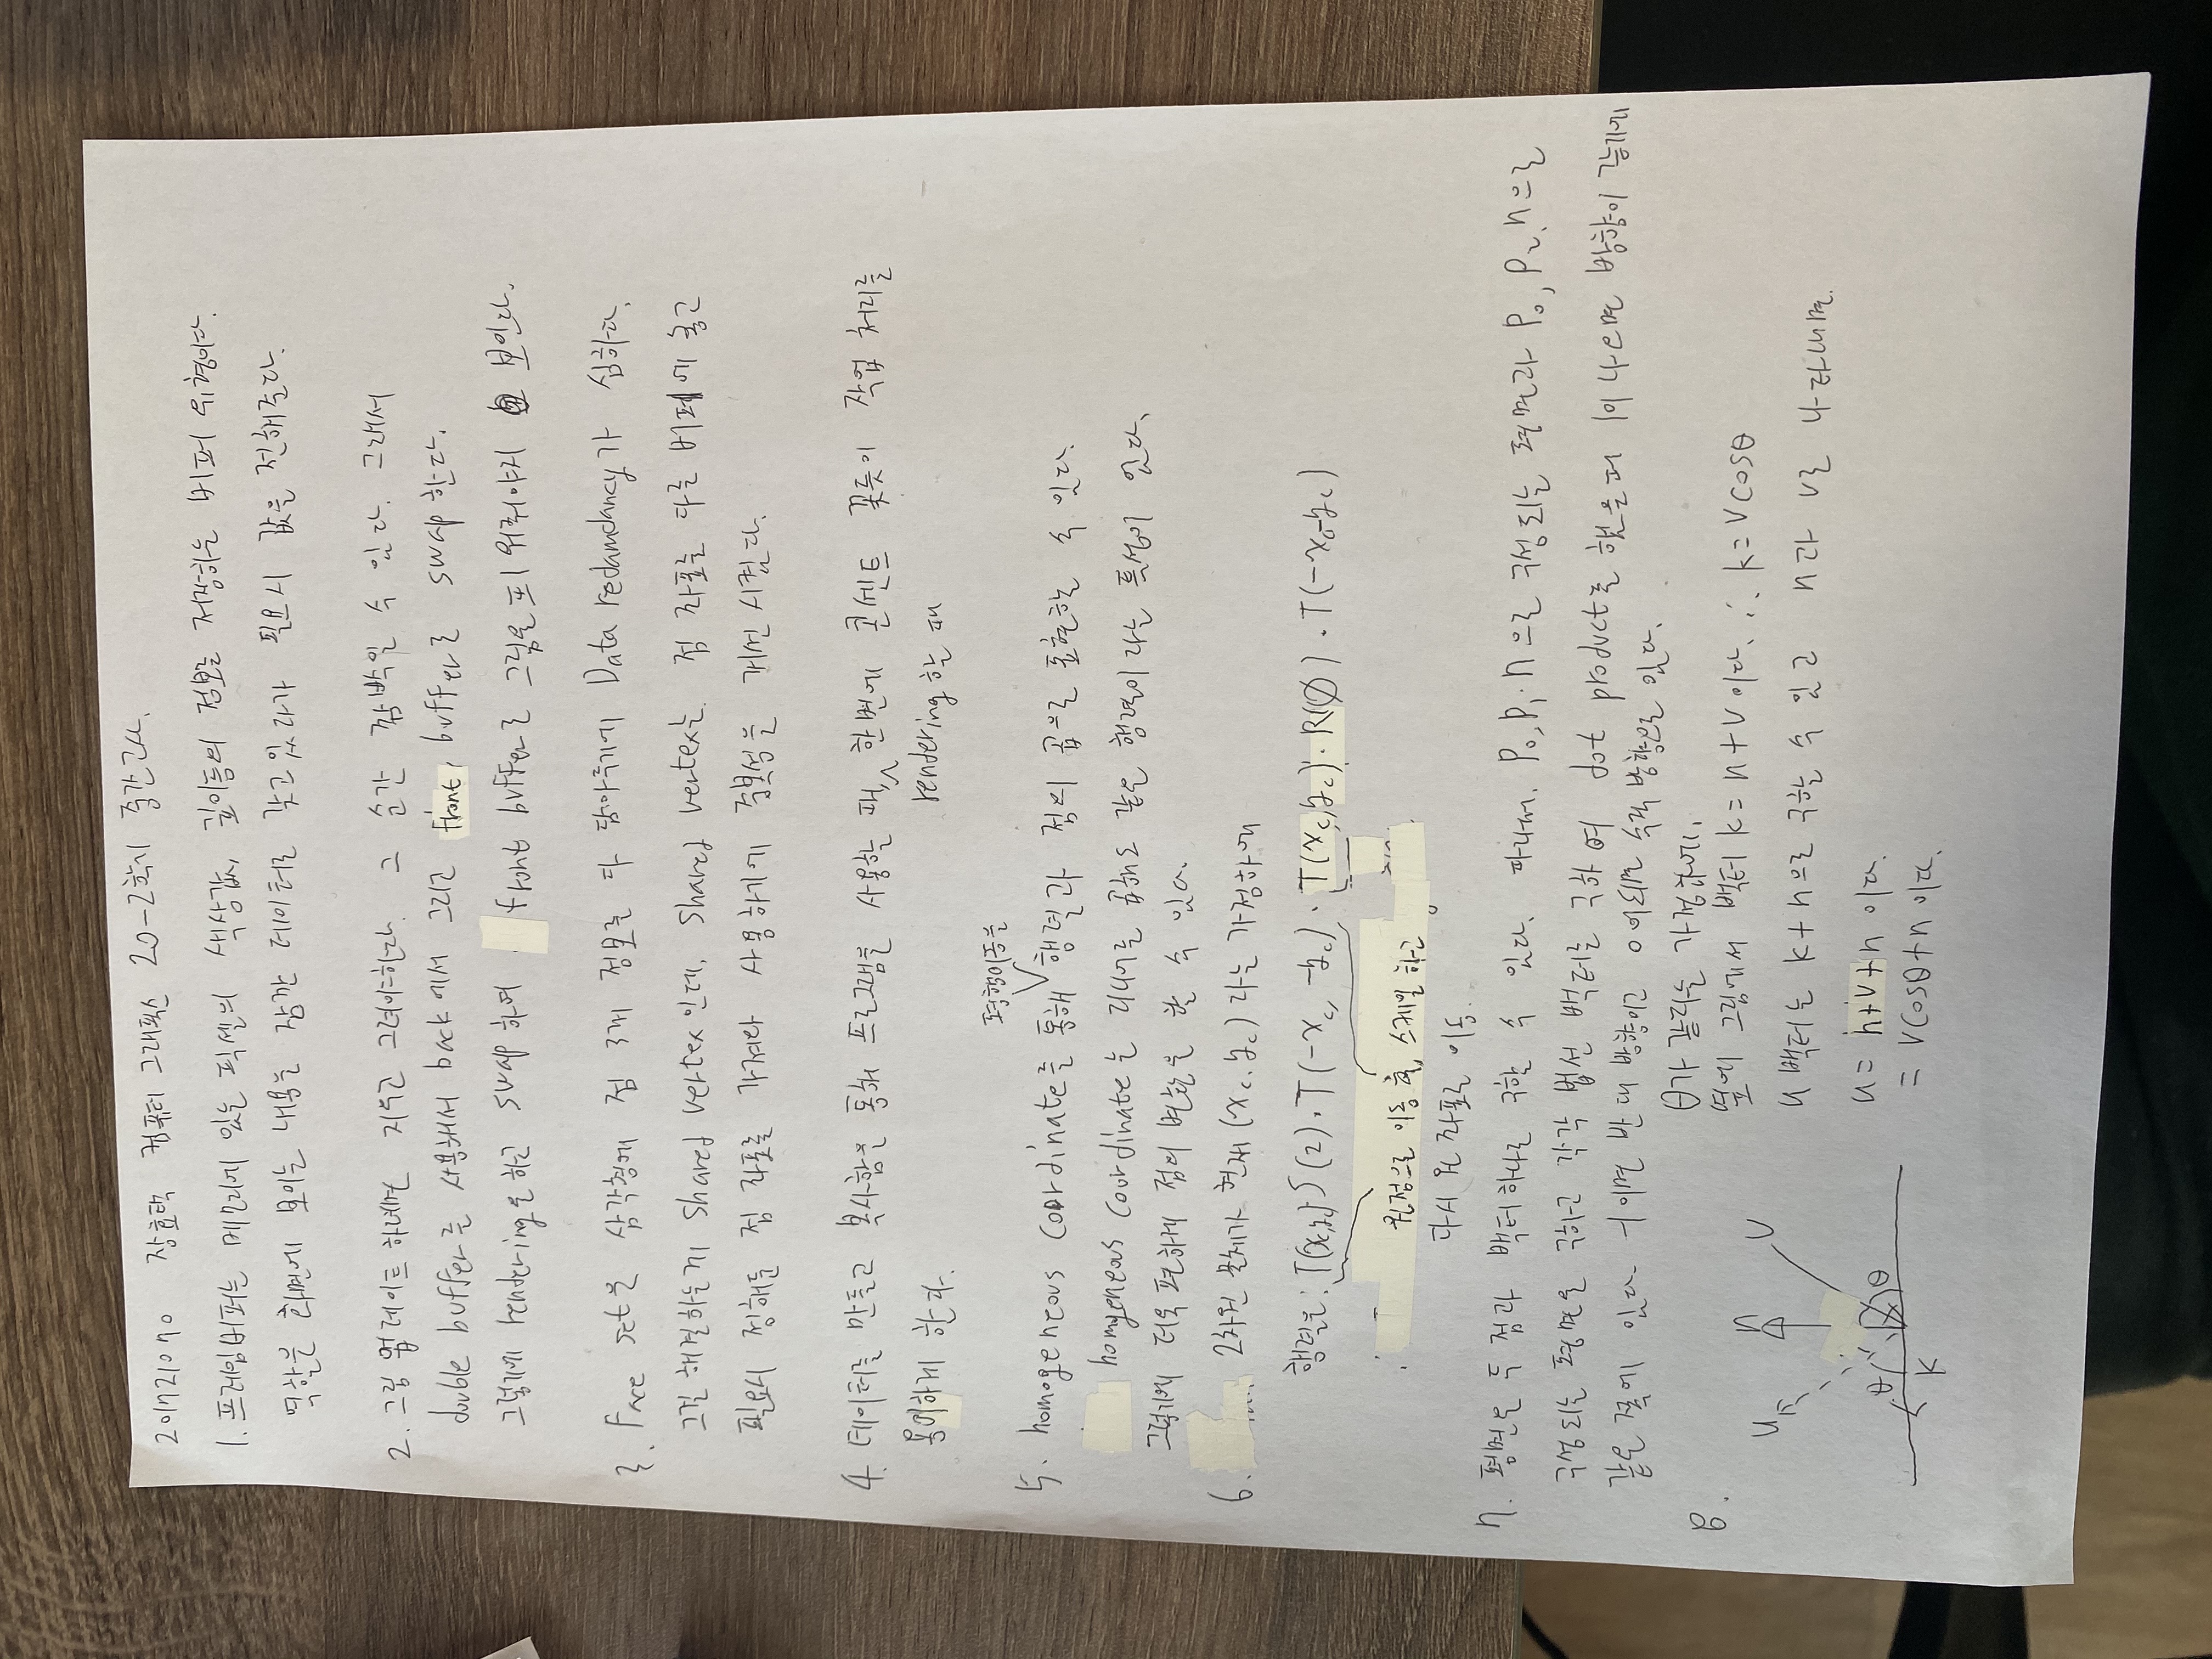 201721070 장효택 컴퓨터 그래픽스 20-2학기 중간고사.
1. 프레임버퍼는 메모리에 있는 픽셀의 색상값, 깊이등의 정보를 저장하는 버퍼 유형이다.
역할은 화면에 보이는 내용을 잠깐 데이터로 갖고있다가 필요시 값을 전해준다.
2. 그림 업데이트 하려면 지우고 그려야한다. 그 순간 깜박일 수 있다. 그래서
double buffer를 사용해서 back에서 그리고 front, buffer로 swap한다.
그렇기에 rendering을 하고 swap하여 front buffer로 그림을 띄워줘야지 보인다.
3. Face set은 삼각형에 점 3개 정보를 다 담아두기에 Data redamdancy가 심하다.
그걸 해결하는게 shared vertex인데, shared vertex는 점 좌표를 다른 버퍼에 놓고
필요시 정해둔 점 좌표를 가져와 사용하기에 중복성을 개선 시킨다.
4. 데이터를 만들고 복사함을 통해 프로그램을 사용할 때, 한번에 콘센트 꽂듯이 작업 처리를
rendering 할 때
용이하게 한다.
평행이동을
5. homogeneous coordinate를 통해 행렬과 점의 곱으로 표현할 수 있다.
homgeneous coordinate는 곱해도 같은 행렬이라는 특성이 있다.
그렇기에 더욱 편하게 점의 변환을 할 수 있다.
6. 2차원 물체가 현재 (x_c, y_c) 라는 가정하에
행렬은: T(x_c,y_c) S(2) · T(-x_c, -y_c) · T(x_c,y_c) · R(∅) · T(-x_c-y_c)
원점으로 이동 후, 스케일 하고
다시 원 좌표로 이동.
7. 평면은 두 점과 백터하나로 구할 수 있다. 따라서. P₀, P₁, n으로 구성되는 평면과 P₀, P₂, n으로
구성되는 평면을 구하고 각각 법선 백터를 구하여 dot product를 했을때 1이 나오면 방향이 같기에
같은 쪽에 있다. -1이면 반대 방향이고 0이되면 수직 방향으로 있다.
8. θ가 같다는 가정하에,
옆에 그림에서 백터 k = n+v 이다. ∴ k = vcosθ
u 백터는 k+n으로 구할 수 있고 n과 v로 나타내면.
u = n+v+n 이다.
= vcosθ+n 이다.
u n v
θ θ
k